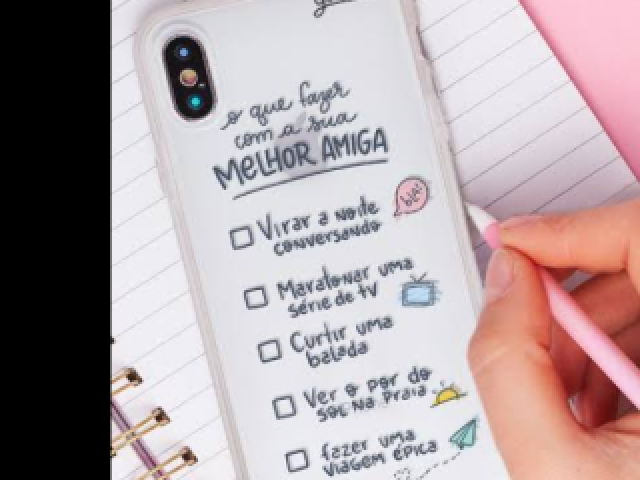 o que fazer
com a sua
MELHOR AMIGA
Virar a noite
conversando
bla!
Maratonar uma
série de tv
Curtir uma
balada
Ver o por do
sol na praia
fazer uma
viagem épica